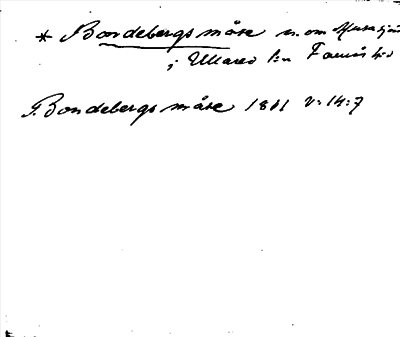 * Bondebergs måse n. om
i Ullared sn Faurås hd
F. Bondebergs måse 1811 v: 14: 7